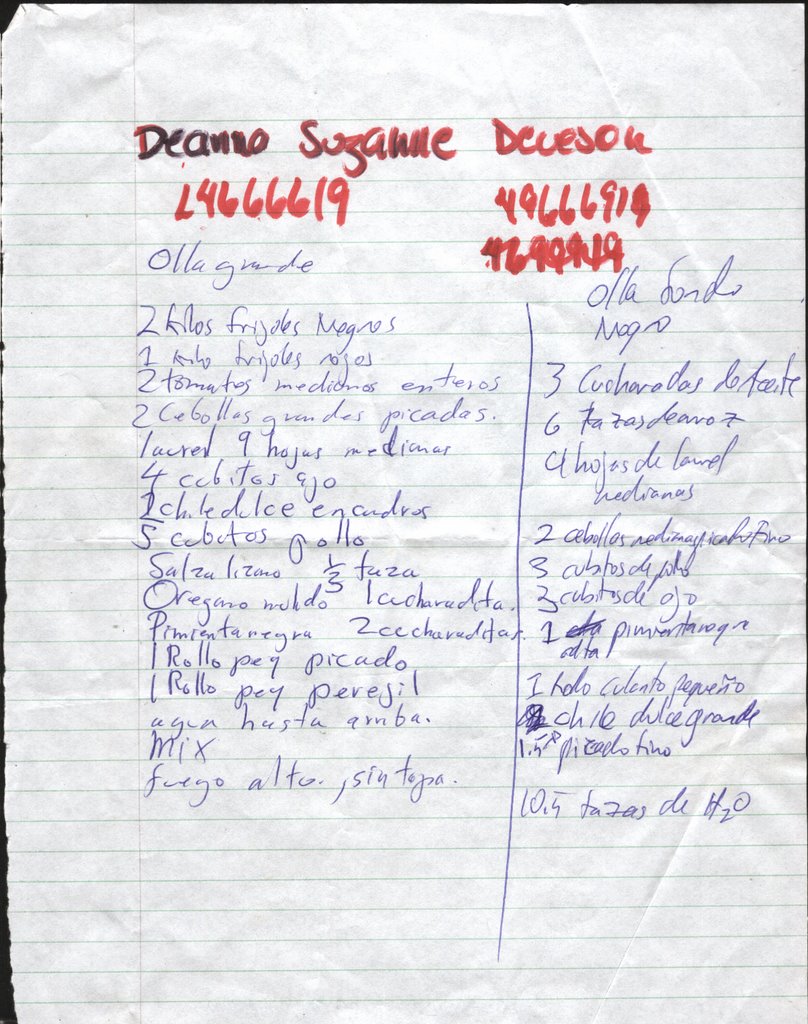 Deanna Suzanne Deceson
L4666619 49666919
Olla grande
2 kilos frijoles Negros
1 kilo frijoles rojos
2 tomatos medianos enteros
2 Cebollas grandes picadas.
laurel 9 hojas medianas
4 cubitos ajo
1 chile dulce en cuadros
5 cubitos pollo
Salza lizano 1/3 taza
Oregano molido 1 cucharadita.
Pimienta negra 2 cucharaditas.
1 Rollo peq picado
1 Rollo peq perejil
agua hasta arriba.
Mix
fuego alto. , sin tapa.
Olla fondo
Negro
3 Cucharadas de Aceite
6 tazas de arroz
4 hojas de laurel
medianas
2 cebollas medianas picadas fino
3 cubitos de pollo
3 cubitos de ajo
1 pimienta negra
cdta
1 Rollo culanto pequeño
chile dulce grande
1.5 picado fino
10.5 tazas de H2O